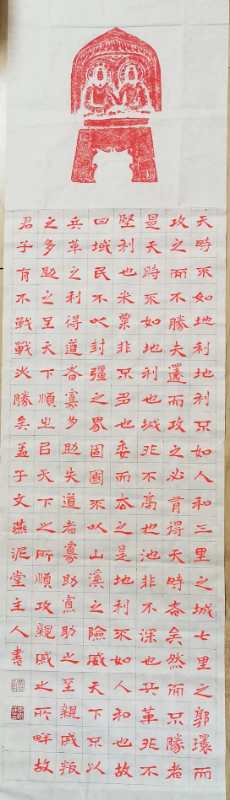 天時不如地利地利不如人和三里之城七里之郭環而
攻之而不勝夫環而攻之必有得天時者矣然而不勝者
是天時不如地利也城非不高也池非不深也兵革非不
堅利也米粟非不多也委而去之是地利不如人和也故
曰域民不以封疆之界固國不以山溪之險威天下不以
兵革之利得道者多助失道者寡助寡助之至親戚叛
之多助之至天下順之以天下之所順攻親戚之所畔故
君子有不戰戰必勝矣孟子文燕泥堂主人書